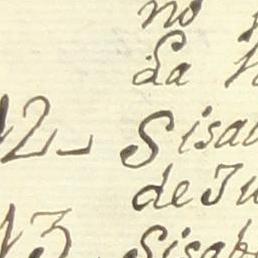 no
La
12_ Sisa
de Ju
13 Sisab